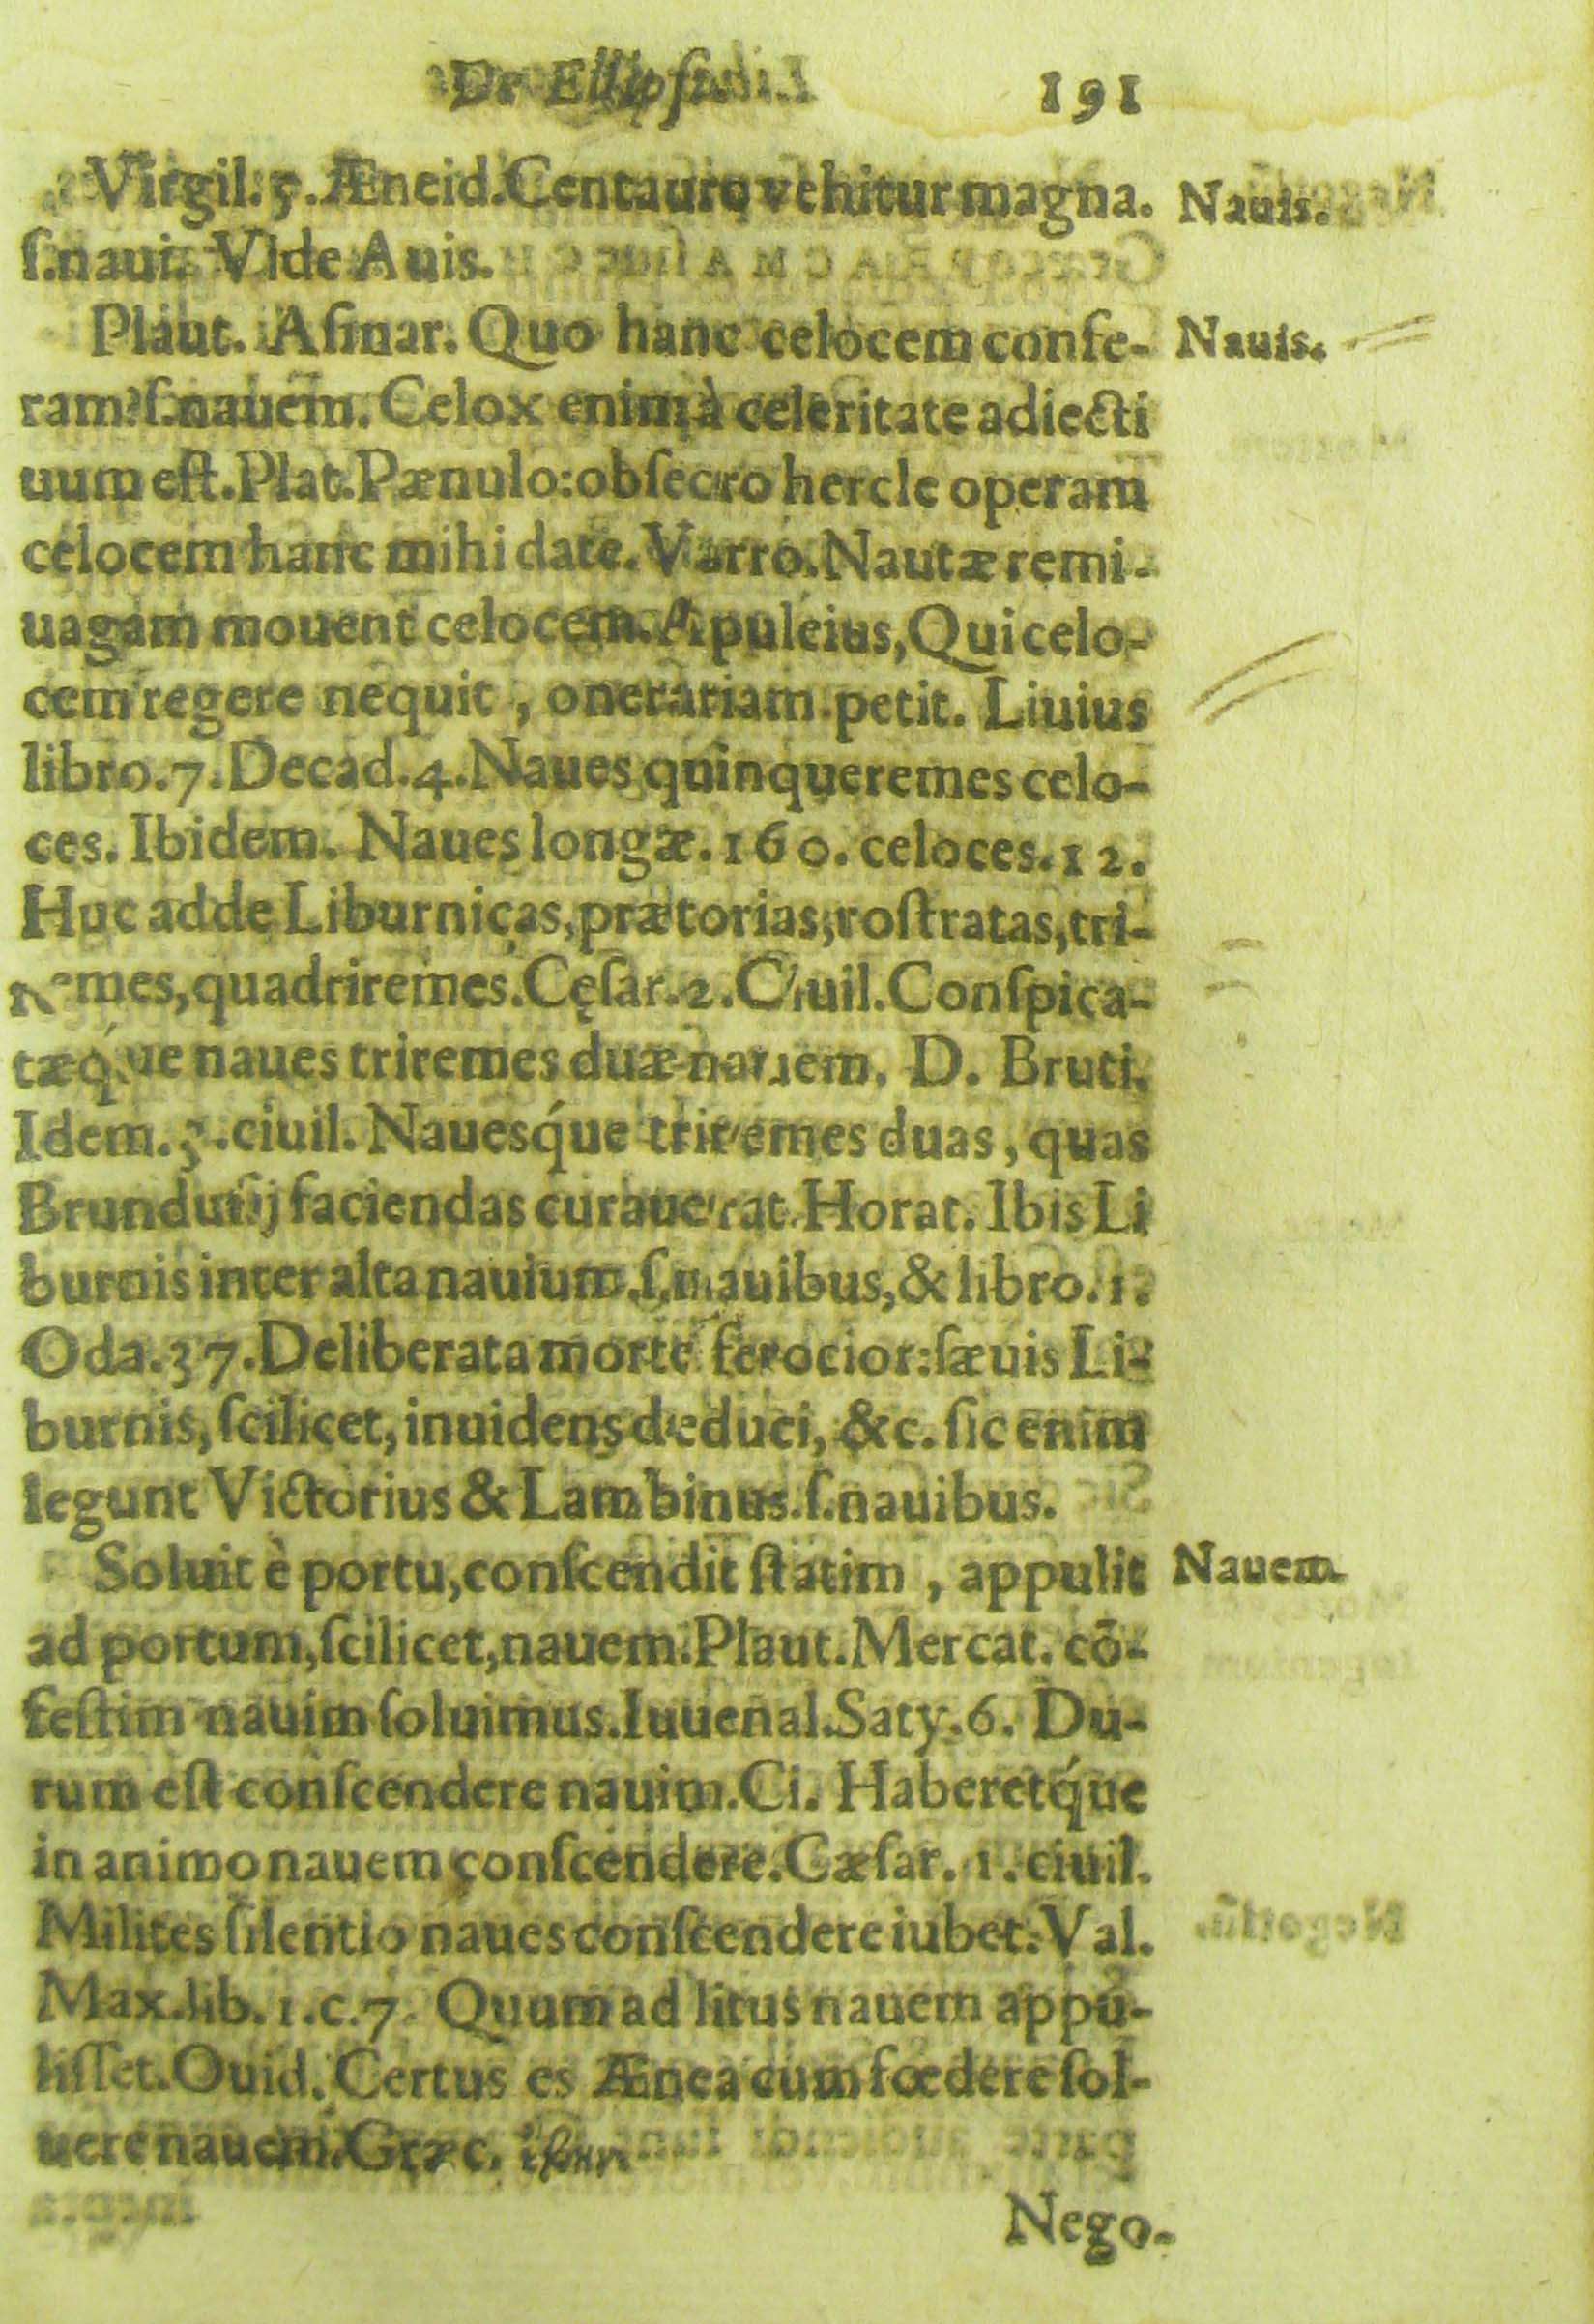 De Ellipsi. 191
Virgil. 5. Æneid. Centauro vehitur magna. Nauis.
ſ. naui. Vide Auis.
Plaut. Aſinar. Quo hanc celocem confe- Nauis.
ram? ſ. nauem. Celox enim à celeritate adiecti
uum eſt. Plat. Pænulo: obſecro hercle operam
celocem hanc mihi date. Varro. Nautæ remi-
uagam mouent celocem. Apuleius, Qui celo-
cem regere nequit, onerariam petit. Liuius
libro. 7. Decad. 4. Naues quinqueremes celo-
ces. Ibidem. Naues longæ. 160. celoces. 12.
Huc adde Liburnicas, prætorias, roſtratas, tri-
remes, quadriremes. Cęſar. 2. Ciuil. Conſpica-
tæq́ue naues triremes duæ nauem. D. Bruti.
Idem. 3. ciuil. Nauesq́ue triremes duas, quas
Brunduſij faciendas curauerat. Horat. Ibis Li
burnis inter alta nauium. ſ. nauibus, & libro. 1.
Oda. 37. Deliberata morte ferocior: ſæuis Li-
burnis, ſcilicet, inuidens deduci, &c. ſic enim
legunt Victorius & Lambinus. ſ. nauibus.
Soluit è portu, conſcendit ſtatim, appulit Nauem
ad portum, ſcilicet, nauem. Plaut. Mercat. cō-
feſtim nauim ſoluimus. Iuuenal. Saty. 6. Du-
rum eſt conſcendere nauim. Ci. Haberetq́ue
in animo nauem conſcendere. Cæſar. 1. ciuil.
Milites ſilentio naues conſcendere iubet. Val.
Max. lib. 1. c. 7. Quum ad litus nauem appu-
liſſet. Ouid. Certus es Ænea cum fœdere ſol-
uere nauem. Græc.
Nego-